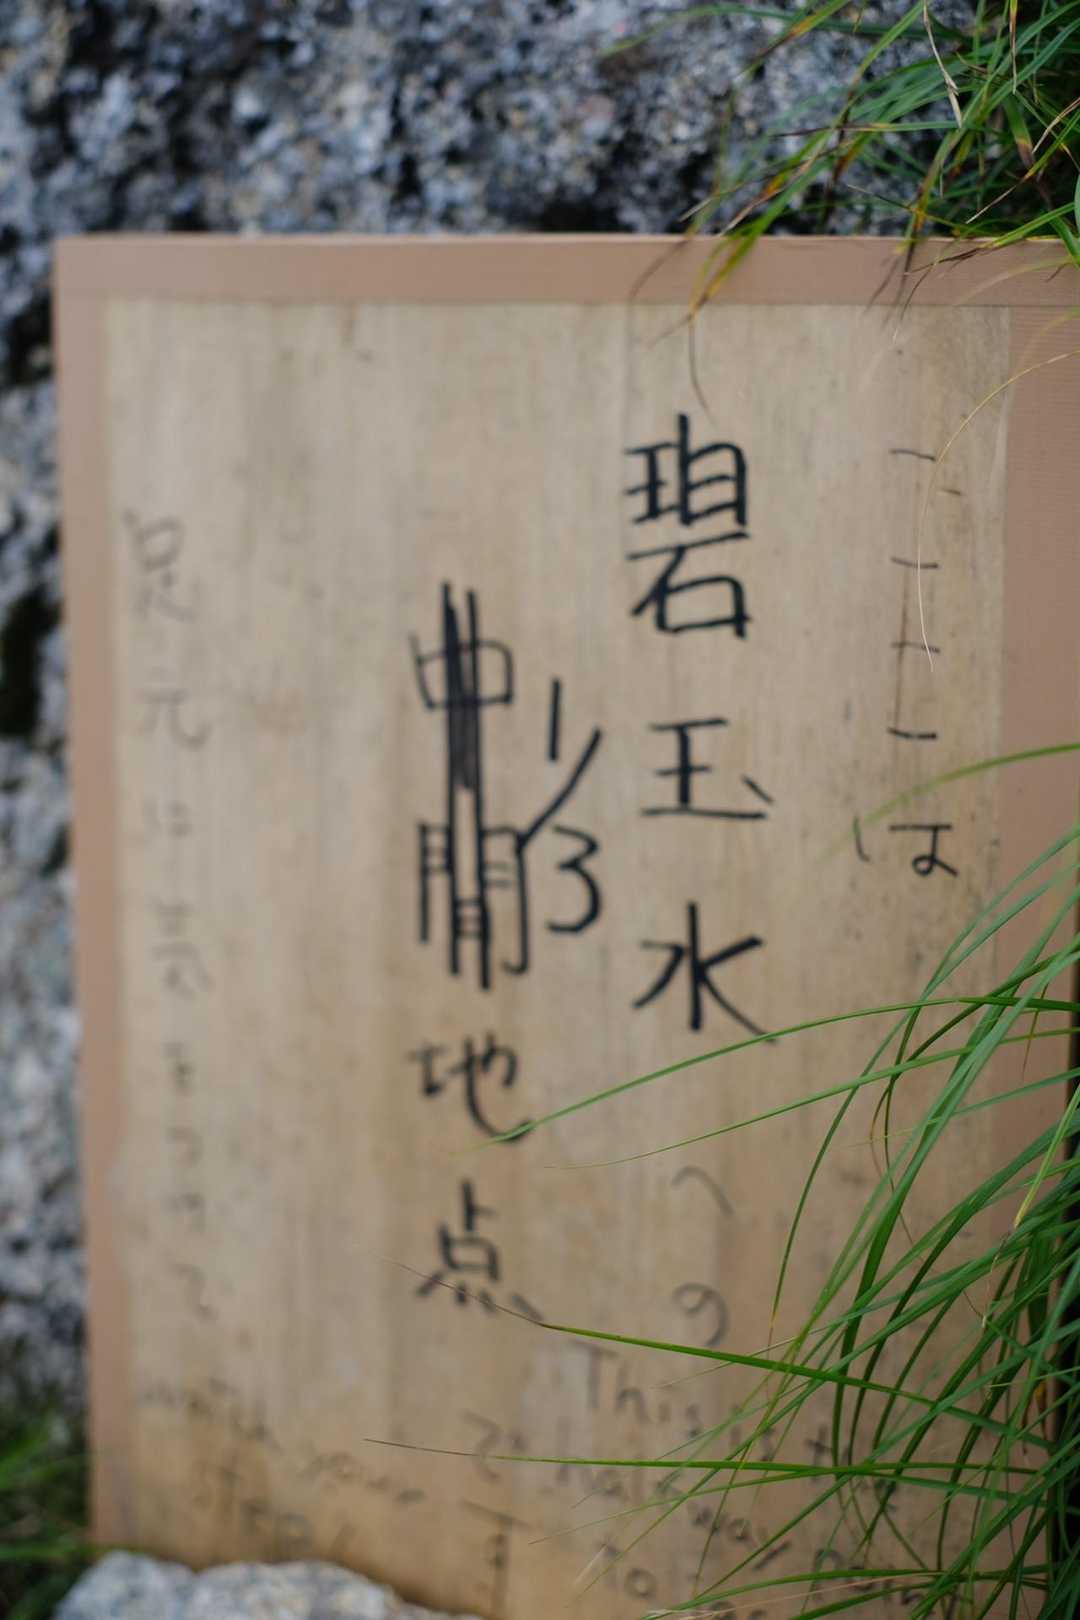 ここは
碧玉水への
1/3
中間地点です
足元に気をつけて
This is the
halfway point
to
Watch your
step!